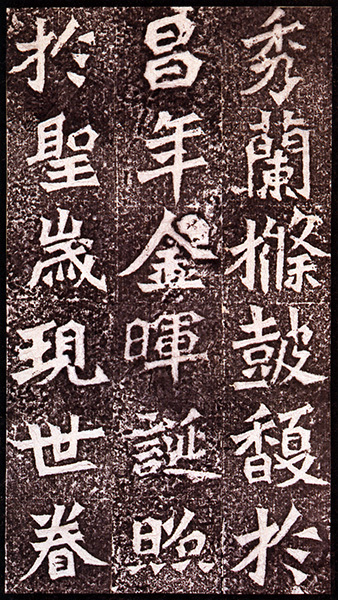 秀蘭條鼓馥於
昌年金暉誕照
於聖歲現世眷